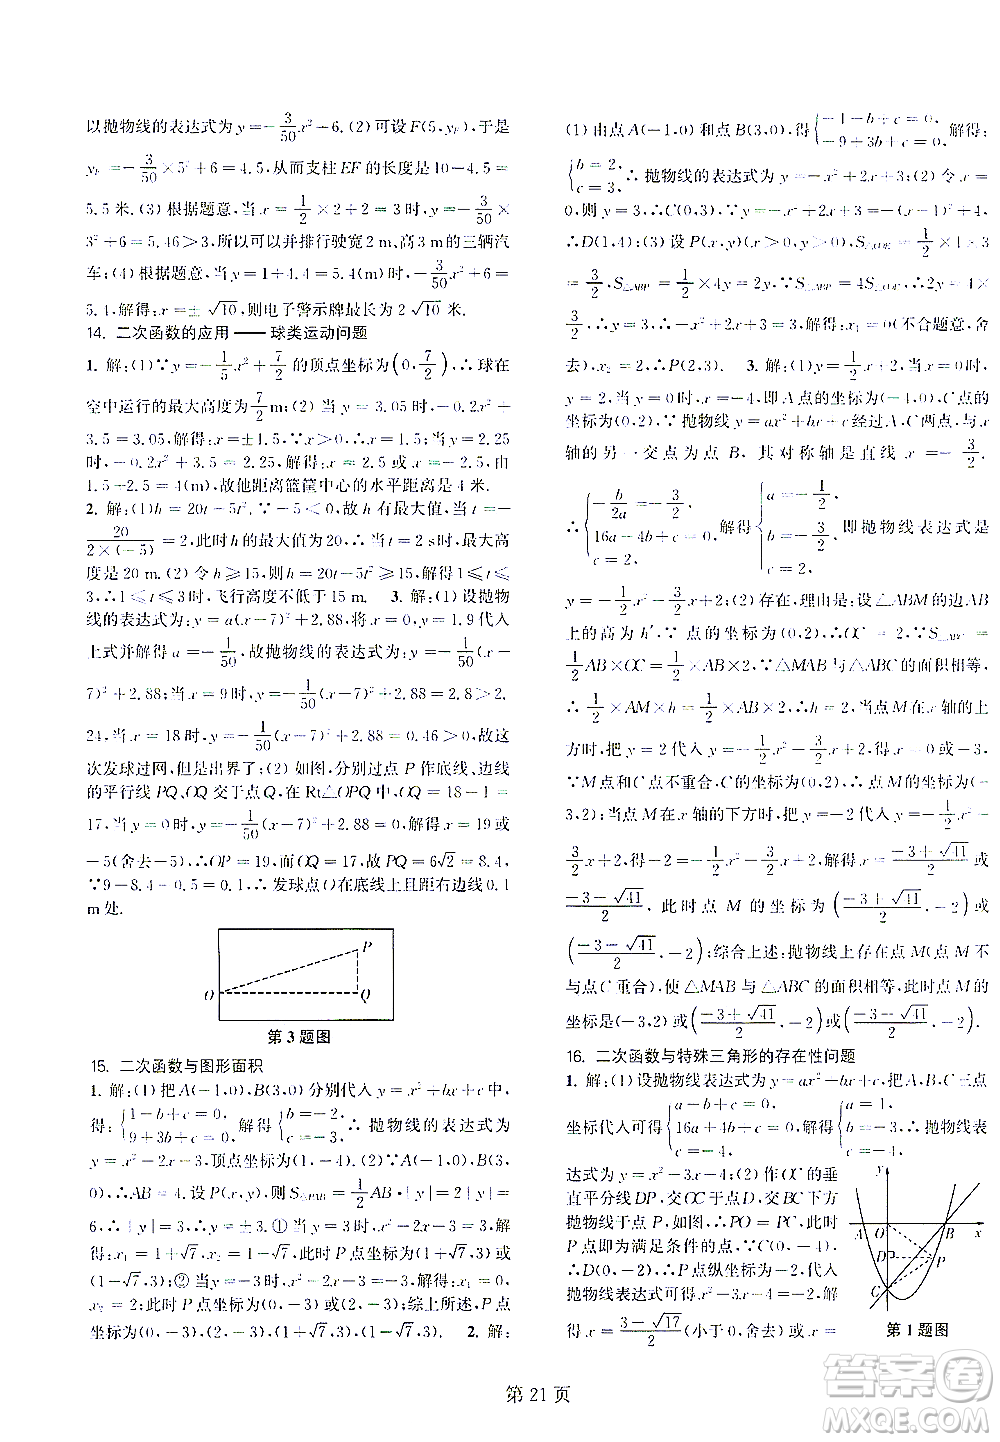 以抛物线的表达式为 y=-3/50x²+6.(2)可设F(5,y_F),于是
y_F=-3/50×5²+6=4.5,从而支柱EF的长度是10-4.5=
5.5米.(3)根据题意,当x=1/2×2+2=3时,y=-3/50×
3²+6=5.46>3,所以可以并排行驶宽2m、高3m的三辆汽
车;(4)根据题意,当y=1+4.4=5.4(m)时,-3/50x²+6=
5.4,解得:x=±√10,则电子警示牌最长为2√10米.
14. 二次函数的应用——球类运动问题
1. 解:(1)∵y=-1/5x²+7/2的顶点坐标为(0,7/2),∴球在
空中运行的最大高度为7/2m;(2)当y=3.05时,-0.2x²+
3.5=3.05,解得:x=±1.5.∵x>0,∴x=1.5.当y=2.25
时,-0.2x²+3.5=2.25,解得:x=2.5或x=-2.5(舍去).
1.5-2.5=4(m),故他距离篮筐中心的水平距离是4米.
2. 解:(1)h=20t-5t².∵-5<0,故h有最大值,当t=-
20/2×(-5)=2,此时h的最大值为20.∴当t=2s时,最大高
度是20m.(2)令h≥15,则h=20t-5t²≥15,解得:1≤t≤
3,∴1≤t≤3时,飞行高度不低于15m. 3. 解:(1)设抛物
线的表达式为:y=a(x-7)²+2.88,将x=0,y=1.9代入
上式并解得a=-1/50,故抛物线的表达式为:y=-1/50(x-
7)²+2.88;当x=9时,y=-1/50(x-7)²+2.88=2.8>2.
24,当x=18时,y=-1/50(x-7)²+2.88=0.46>0,故这
次发球过网,但是出界了;(2)如图,分别过点P作底线、边线
的平行线PQ、OQ交于点Q,在Rt△OPQ中,OQ=18-1=
17,当y=0时,-1/50(x-7)²+2.88=0,解得:x=19或
-5(舍去-5),∴OP=19,而OQ=17,故PQ=6√2=8.4,
∵9-8.4-0.5=0.1,∴发球点O在底线上且距右边线0.1
m处.
O
P
Q
第3题图
15. 二次函数与图形面积
1. 解:(1)把A(-1,0),B(3,0)分别代入y=x²+bx+c中,
得:{1-b+c=0, 9+3b+c=0,解得:{b=-2, c=-3,∴抛物线的表达式为
y=x²-2x-3,顶点坐标为(1,-4).(2)∵A(-1,0)、B(3,
0),∴AB=4.设P(x,y),则S△PAB=1/2AB·|y|=2|y|=
6,∴|y|=3,∴y=±3.①当y=3时,x²-2x-3=3,解
得:x₁=1+√7,x₂=1-√7,此时P点坐标为(1+√7,3)或
(1-√7,3);②当y=-3时,x²-2x-3=-3,解得:x₁=0,
x₂=2,此时P点坐标为(0,-3)或(2,-3);综上所述,P点
坐标为(0,-3)或(2,-3)或(1+√7,3)或(1-√7,3). 2. 解:
(1)由点A(-1,0)和点B(3,0),得{-1-b+c=0, -9+3b+c=0,解得:
{b=2, c=3,∴抛物线的表达式为y=-x²+2x+3;(2)令x=
0,则y=3,∴C(0,3),∵y=-x²+2x+3=-(x-1)²+4,
∴D(1,4);(3)设P(x,y)(x>0,y>0),S△COE=1/2×1×3=
3/2,S△ABP=1/2×4y=2y,∵S△ABP=4S△COE,∴2y=4×
3/2,∴y=3,∴-x²+2x+3=3,解得:x₁=0(不合题意,舍
去),x₂=2,∴P(2,3). 3. 解:(1)∵y=1/2x+2,当x=0时,
y=2,当y=0时,x=-4,即A点的坐标为(-4,0),C点的
坐标为(0,2),∵抛物线y=ax²+bx+c经过A、C两点,与x
轴的另一交点为点B,其对称轴是直线x=-3/2.
∴{-b/2a=-3/2, 16a-4b+c=0, c=2,解得{a=-1/2, b=-3/2, c=2,即抛物线表达式是
y=-1/2x²-3/2x+2;(2)存在,理由是:设△ABM的边AB
上的高为h,∵C点的坐标是(0,2),∴OC=2,∵S△ABC=
1/2AB×OC=1/2×AB×2,∵△MAB与△ABC的面积相等,
∴1/2×AM×h=1/2×AB×2,∴h=2,当点M在x轴的上
方时,把y=2代入y=-1/2x²-3/2x+2,解得:x=0或-3,
∵M点和C点不重合,C的坐标为(0,2),∴M的坐标为(-
3,2);当点M在x轴的下方时,把y=-2代入y=-1/2x²-
3/2x+2,得:-2=-1/2x²-3/2x+2,解得:x=(-3+√41)/2或
(-3-√41)/2,此时点M的坐标为((-3+√41)/2,-2)或
((-3-√41)/2,-2);综合上述:抛物线上存在点M(点M不
与点C重合),使△MAB与△ABC的面积相等,此时点M的
坐标是(-3,2)或((-3+√41)/2,-2)或((-3-√41)/2,-2).
16. 二次函数与特殊三角形的存在性问题
1. 解:(1)设抛物线表达式为y=ax²+bx+c,把A、B、C三点
坐标代入可得{a-b+c=0, 16a+4b+c=0, c=-4,解得{a=1, b=-3, c=-4,∴抛物线
表达式为y=x²-3x-4;(2)作OC的垂
直平分线DP,交OC于点D,交BC下方
抛物线于点P,如图,∴PO=PC,此时P
点即为满足条件的点,∵C(0,-4),
∴D(0,-2),∴P点纵坐标为-2,代入
抛物线表达式可得x²-3x-4=-2,解
得x=(3-√17)/2(小于0,舍去)或x=
y
A
O
B
x
D
P
C
第1题图
第21页
答案圈
MXQE.COM